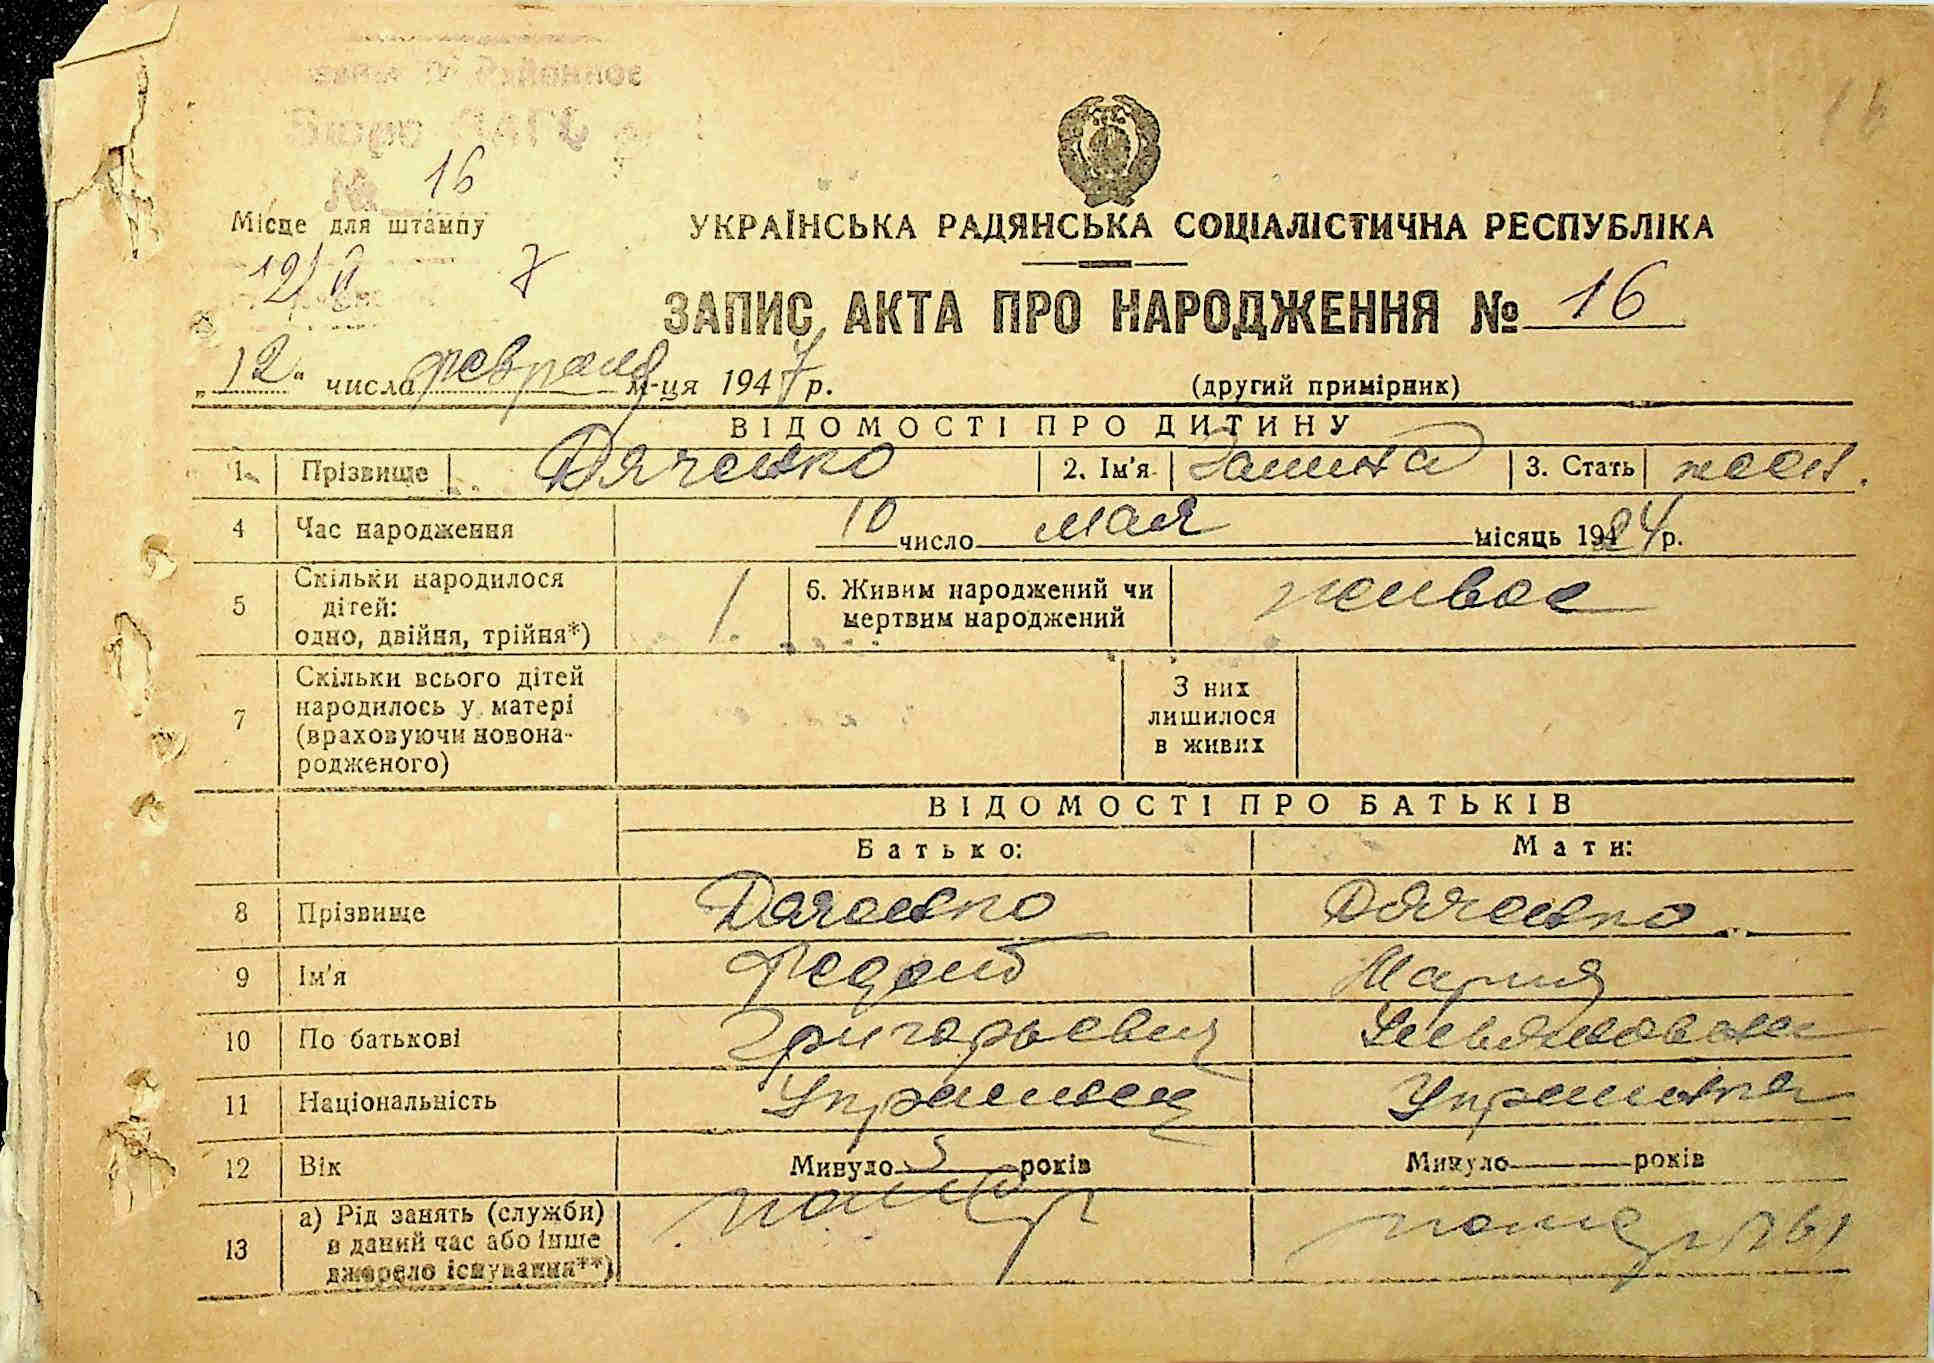 16
16
Місце для штампу
УКРАЇНСЬКА РАДЯНСЬКА СОЦІАЛІСТИЧНА РЕСПУБЛІКА
12/II 7
ЗАПИС АКТА ПРО НАРОДЖЕННЯ № 16
„12“ числа февраля м-ця 1947 р.
(другий примірник)
ВІДОМОСТІ ПРО ДИТИНУ
1. Прізвище Дяченко 2. Ім'я Галина 3. Стать жен.
4 Час народження 10 число мая місяць 1924 р.
5 Скільки народилося дітей: одно, двійня, трійня*) 1. 6. Живим народжений чи мертвим народжений живое
7 Скільки всього дітей народилось у матері (враховуючи новона-родженого) З них лишилося в живих
ВІДОМОСТІ ПРО БАТЬКІВ
Батько: Мати:
8 Прізвище Дяченко Дяченко
9 Ім'я Федот Мария
10 По батькові Григорьевич
11 Національність Украинец Украинка
12 Вік Минуло років Минуло років
13 а) Рід занять (служби) в даний час або інше джерело існування**)